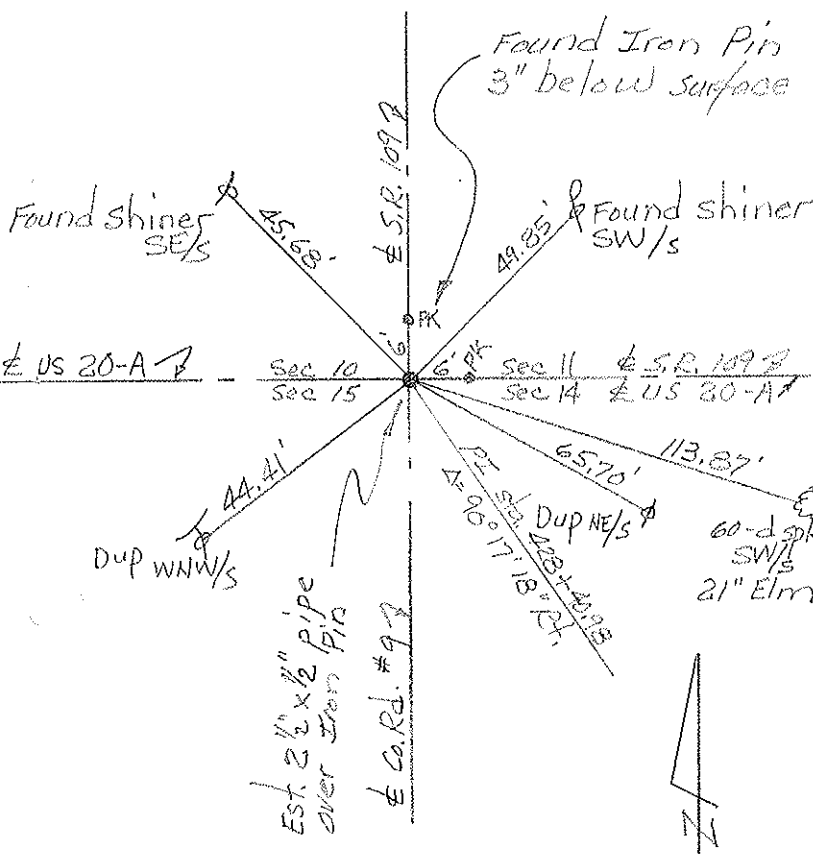 Found Iron Pin
3" below surface
℄ S.R. 109
Found shiner
SE/s
45.68'
49.85'
Found shiner
SW/s
PK
6'
6'
PK
℄ US 20-A
Sec 10
Sec 15
Sec 11 ℄ S.R. 109
Sec 14 ℄ US 20-A
44.41'
Dup WNW/s
65.70'
Dup NE/s
113.87'
60-d spk
SW/s
21" Elm
PI sta. 428+40.98
Δ= 90° 17' 18" Rt.
Est. 2 1/2" x 1/2" pipe
over Iron Pin
℄ Co. Rd. #9
N